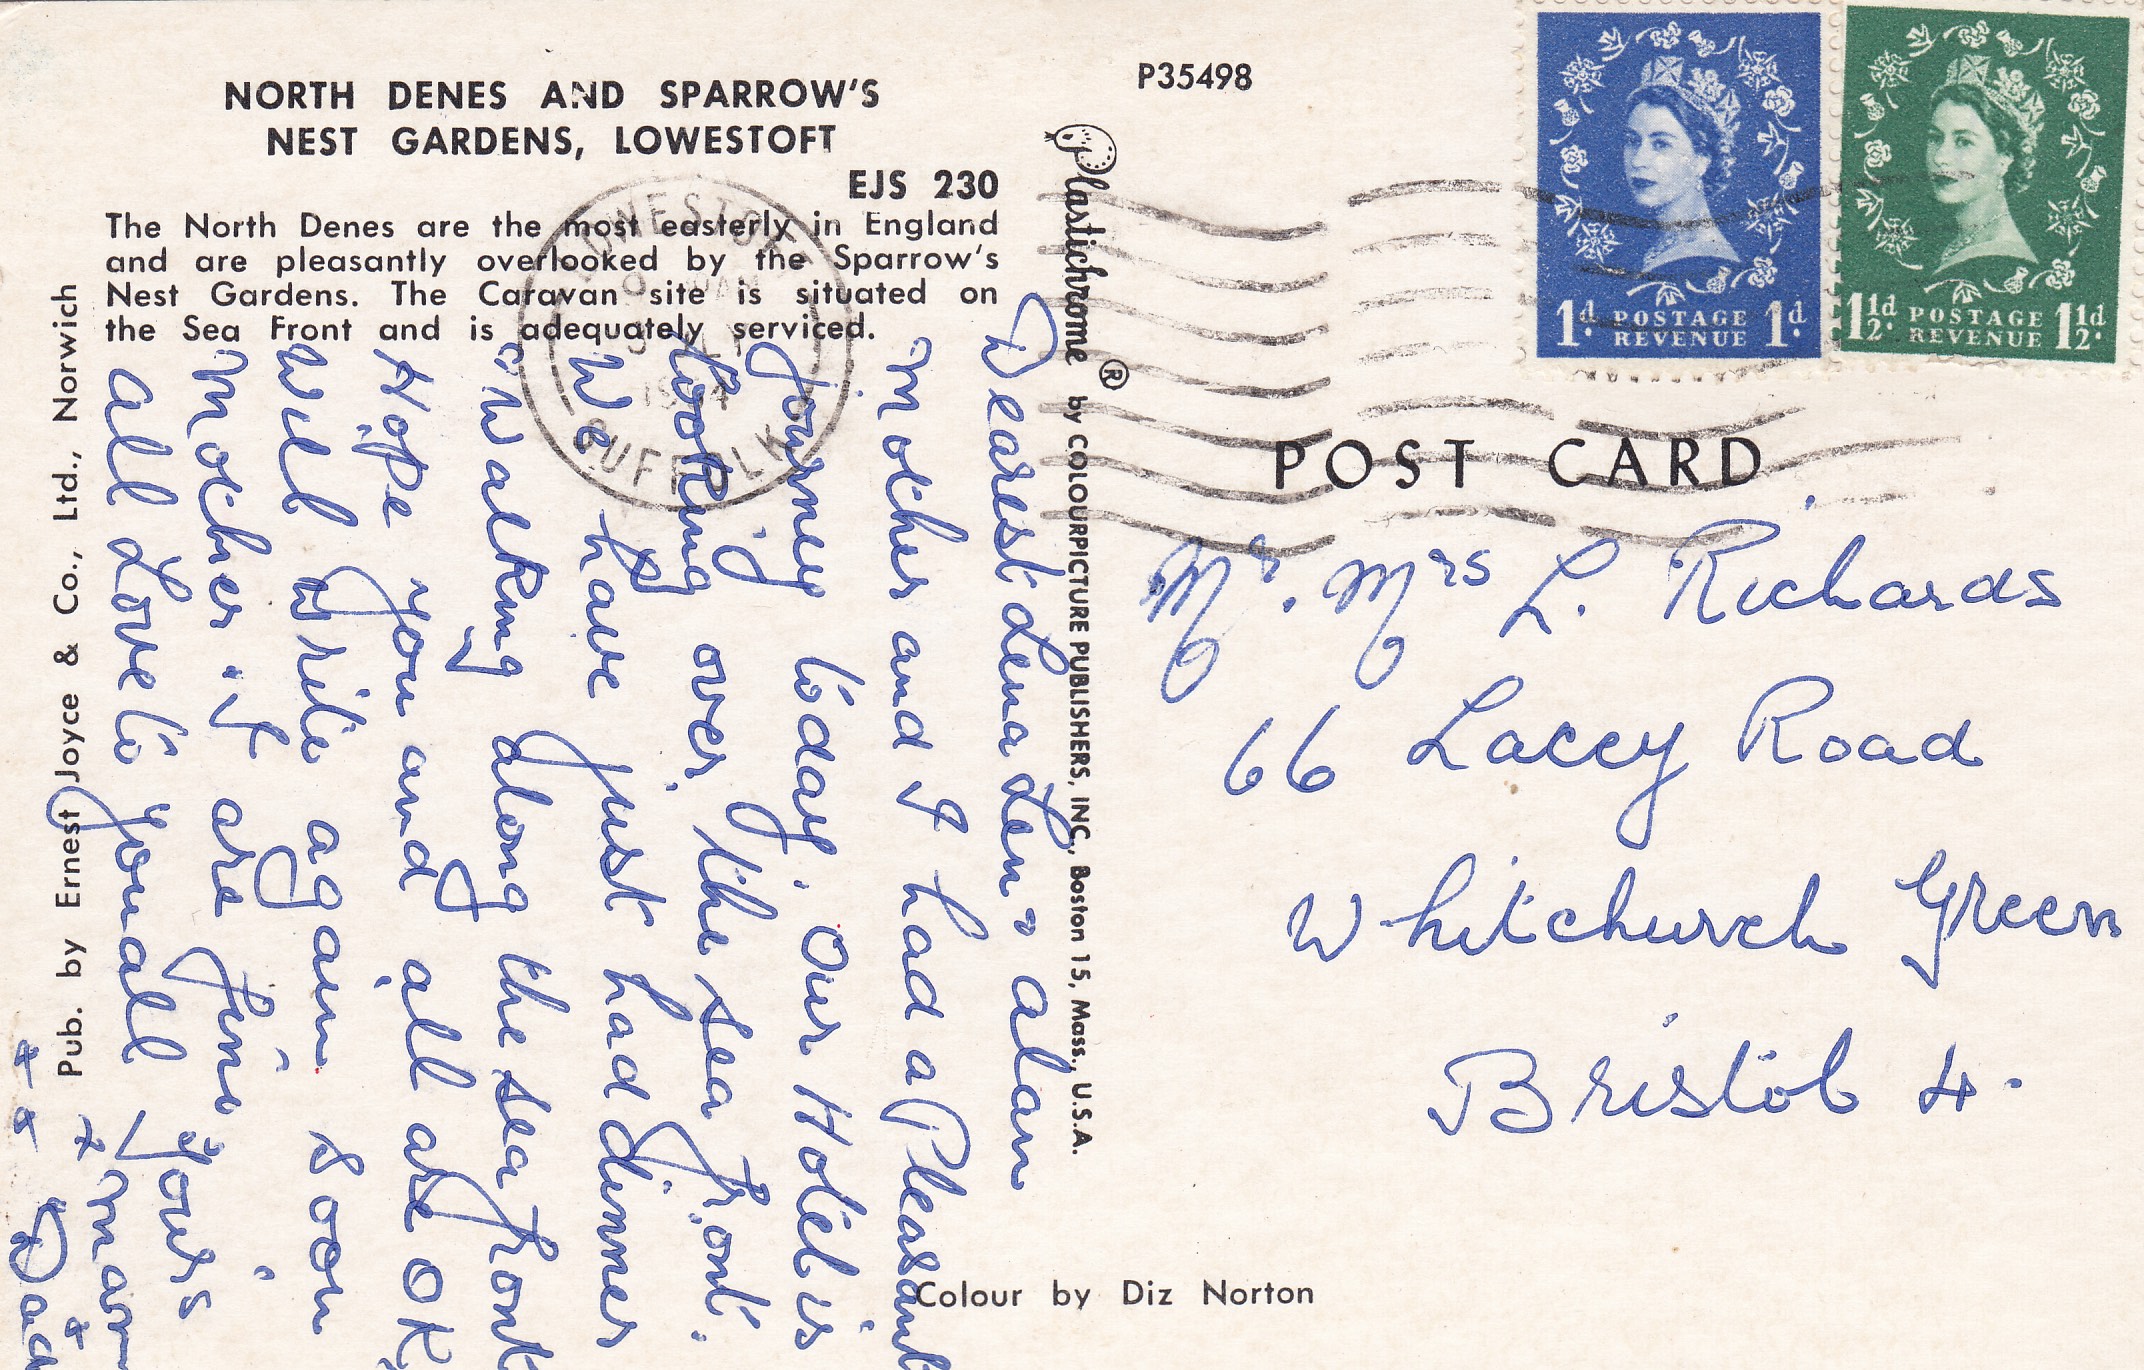 NORTH DENES AND SPARROW'S
NEST GARDENS, LOWESTOFT
EJS 230
The North Denes are the most easterly in England
and are pleasantly overlooked by the Sparrow's
Nest Gardens. The Caravan site is situated on
the Sea Front and is adequately serviced.
Pub. by Ernest Joyce & Co., Ltd., Norwich
P35498
Plastichrome ® by COLOURPICTURE PUBLISHERS, INC., Boston 15, Mass., U.S.A.
POST CARD
LOWESTOFT
SUFFOLK
1d. POSTAGE 1d.
REVENUE
1½d. POSTAGE 1½d.
REVENUE
Dearest Lena Len & alan
Mother and I had a Pleasant
Journey today. Our Hotel is
looking over the sea front.
We have just had dinner
& walking along the sea front
Hope you and all are OK
Will write again soon
Mother & I are fine yours
all Love to you all
Dad
Mr. Mrs L. Richards
66 Lacey Road
Whitchurch Green
Bristol 4.
Colour by Diz Norton